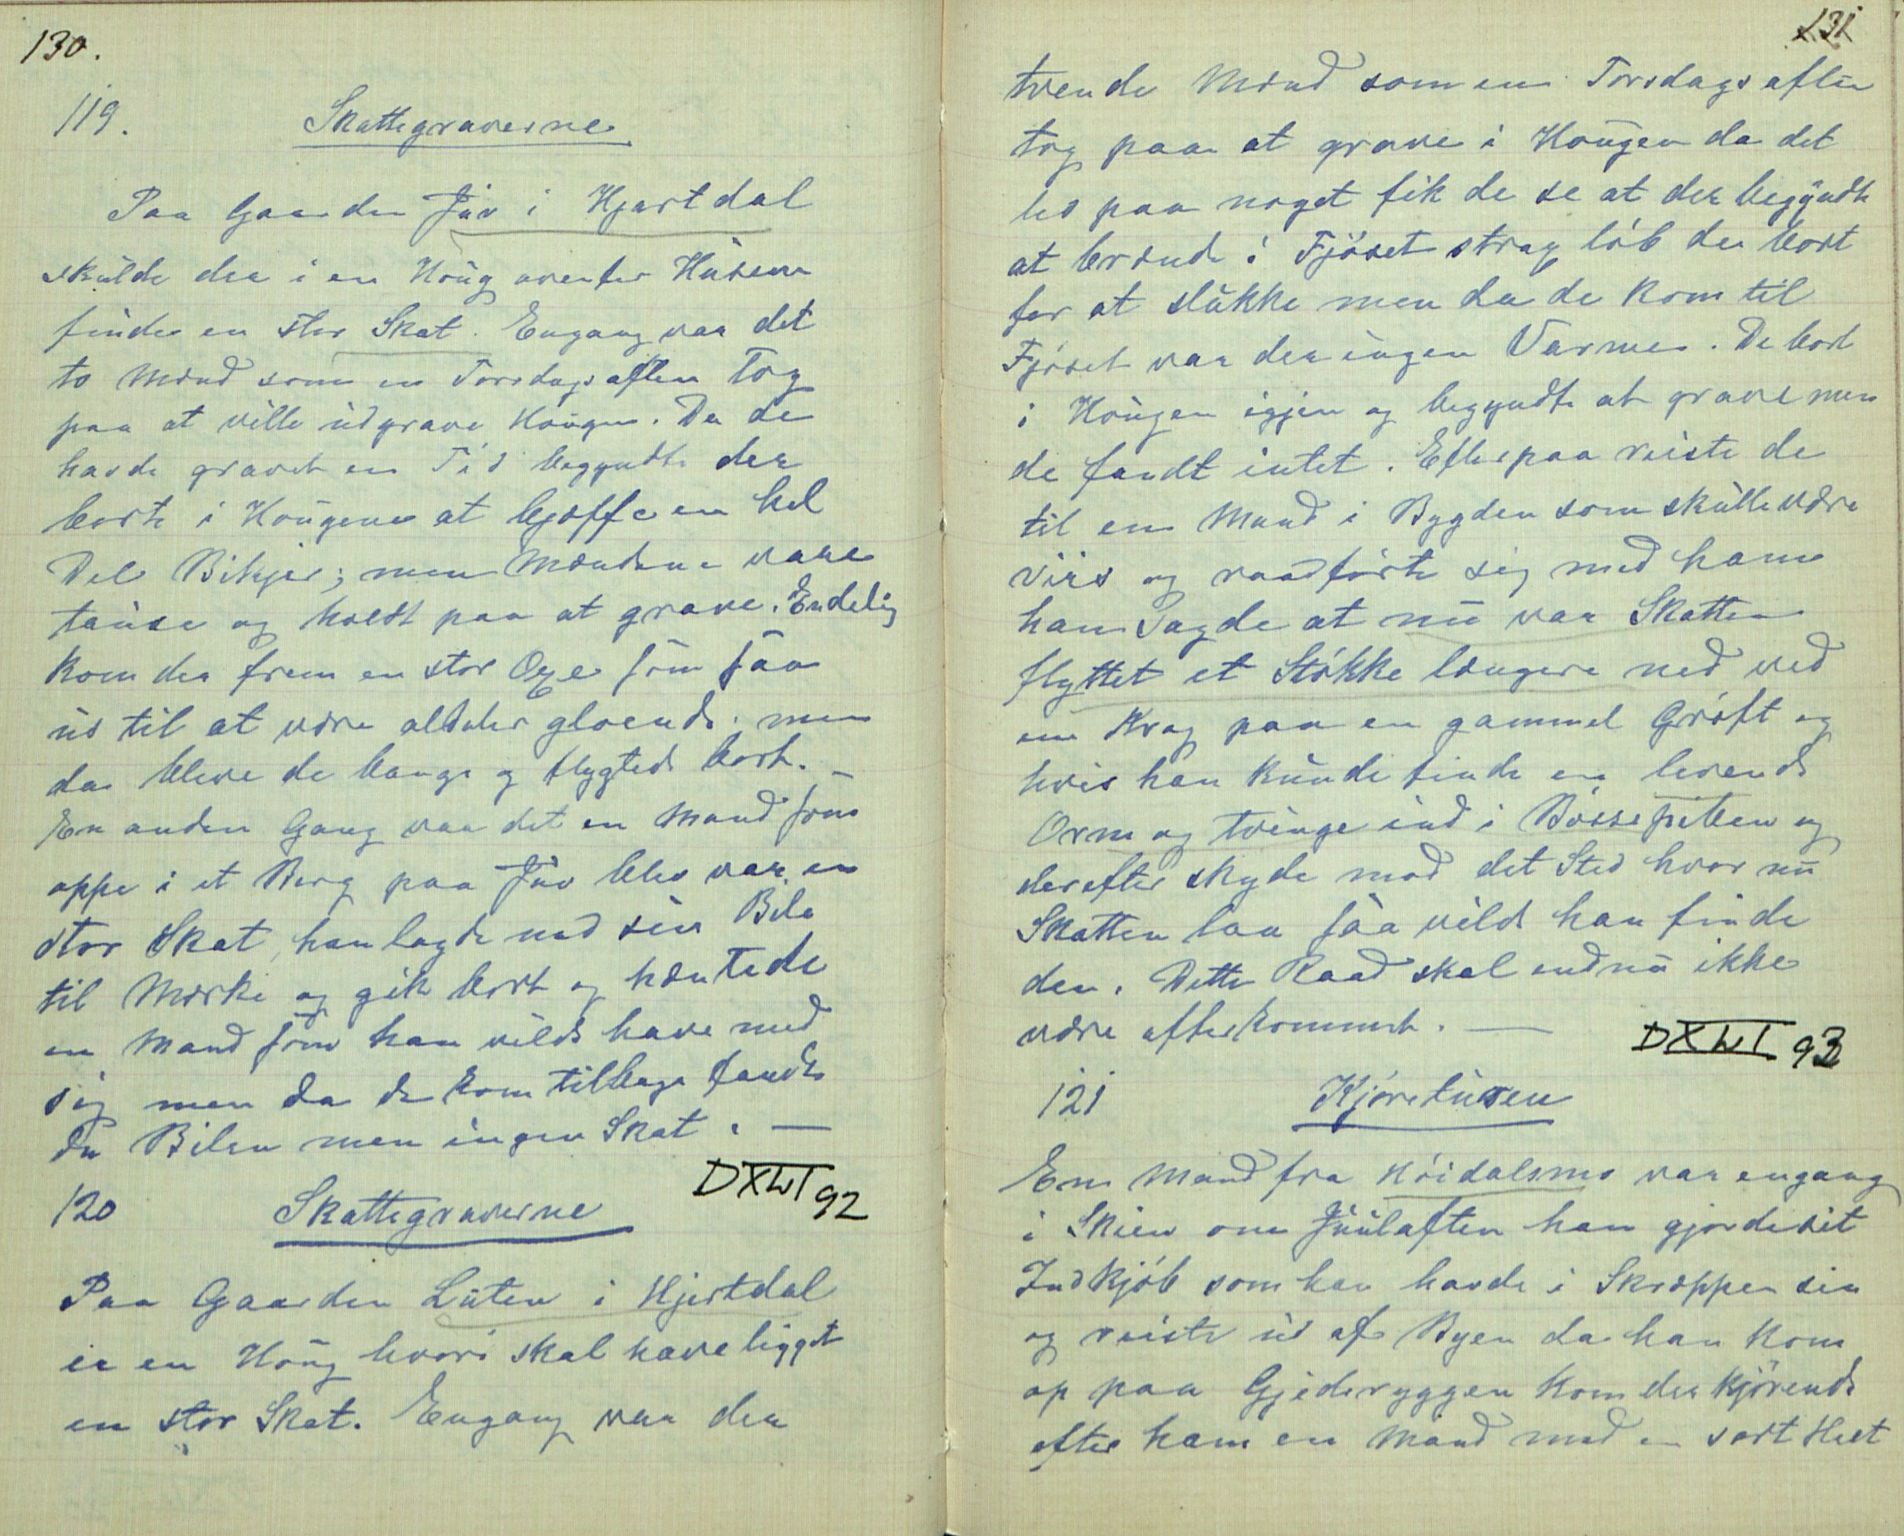 130.
119. Skattegraverne
Paa Gaarden Juv i Hjertdal
skulde der i en Houg ovenfor Husene
findes en stor Skat. Engang var det
to Mænd som en Torsdagsaften Tog
paa at ville udgrave Hougen. Da de
havde gravet en Tid begyndte der
borte i Hougene at bjæffe en hel
Del Bikjer; men Mændene vare
tause og holdt paa at grave. Endelig
kom der frem en stor Oxe som saa
ud til at være aldeles gloende. men
da bleve de bange og flygtede bort. _
En anden Gang var det en Mand som
oppe i et Berg paa Juv blev var en
stor Skat, han lagde ned sin Bile
til Mærke og gik bort og hæntede
en Mand som han vilde have med
sig men da de kom tilbage fandt
de Bilen men ingen Skat. —
DXLVI 92
120 Skattegraverne
Paa Gaarden Luten i Hjertdal
er en Houg hvori skal have ligget
en stor Skat. Engang var der
131
tvende Mænd som en Torsdagsaften
tog paa at grave i Hougen da det
led paa noget fik de se at der begyndte
at brænde i Fjøset strax løb de bort
for at slukke men da de kom til
Fjøset var der ingen Varme. De bort
i Hougen igjen og begyndte at grave men
de fandt intet. Efterpaa reiste de
til en Mand i Bygden som skulle være
viis og raadførte sig med ham
han sagde at nu var Skatten
flyttet et Støkke længere ned ved
en Krog paa en gammel Grøft og
hvis han kunde finde en levende
Orm og tvinge ind i Bøssepiben og
derefter skyde mod det Sted hvor nu
Skatten laa saa vilde han finde
den. Dette Raad skal endnu ikke
være efterkommet. —
DXLVI 93
121 Kjøretusen
En Mand fra Høidalsmo var engang
i Skien om Juulaften han gjorde sit
Indkjøb som han havde i Skræppen sin
og reiste ud af Byen da han kom
op paa Gjederyggen kom der kjørende
efter ham en Mand med en sort Hest